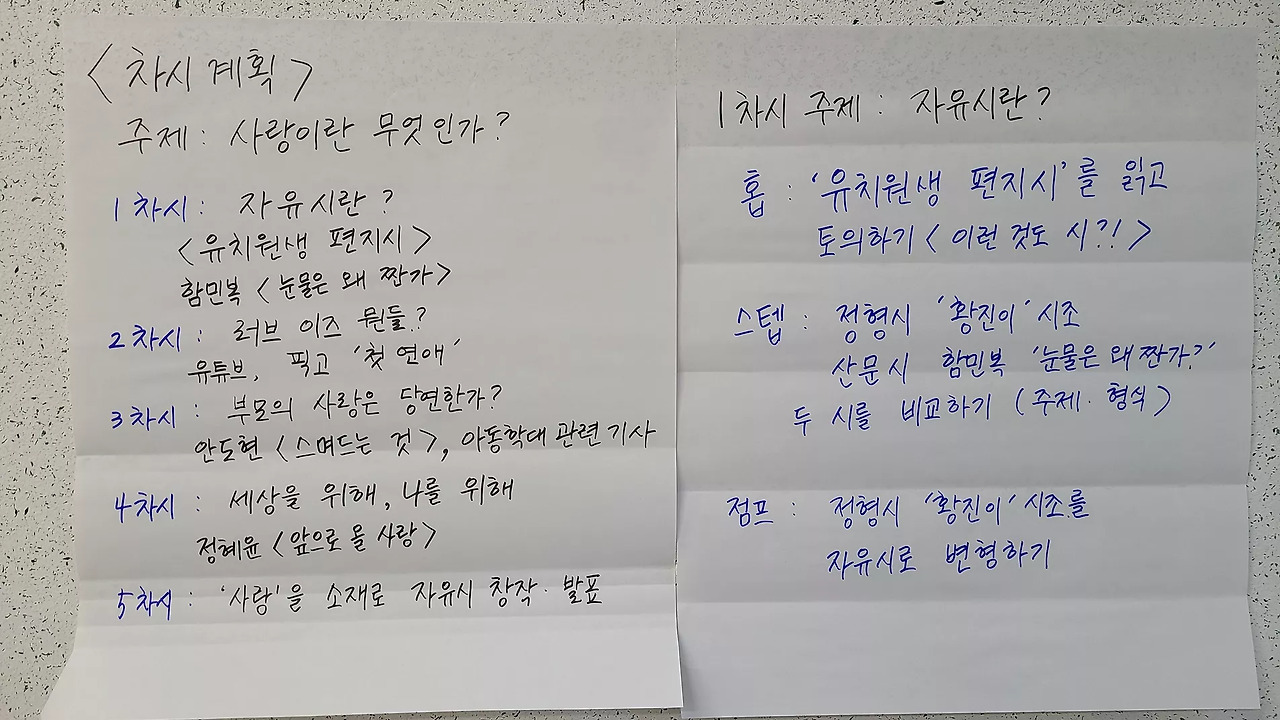 <차시 계획>
주제: 사랑이란 무엇인가?
1차시: 자유시란?
<유치원생 편지시>
함민복 <눈물은 왜 짠가>
2차시: 러브 이즈 뭔들?
유튜브, 픽고 '첫 연애'
3차시: 부모의 사랑은 당연한가?
안도현 <스며드는 것>, 아동학대 관련 기사
4차시: 세상을 위해, 나를 위해
정혜윤 <앞으로 올 사랑>
5차시: '사랑'을 소재로 자유시 창작·발표
1차시 주제: 자유시란?
홉: '유치원생 편지시'를 읽고
토의하기 <이런 것도 시?!>
스텝: 정형시 '황진이' 시조
산문시 함민복 '눈물은 왜 짠가?'
두 시를 비교하기 (주제·형식)
점프: 정형시 '황진이' 시조를
자유시로 변형하기